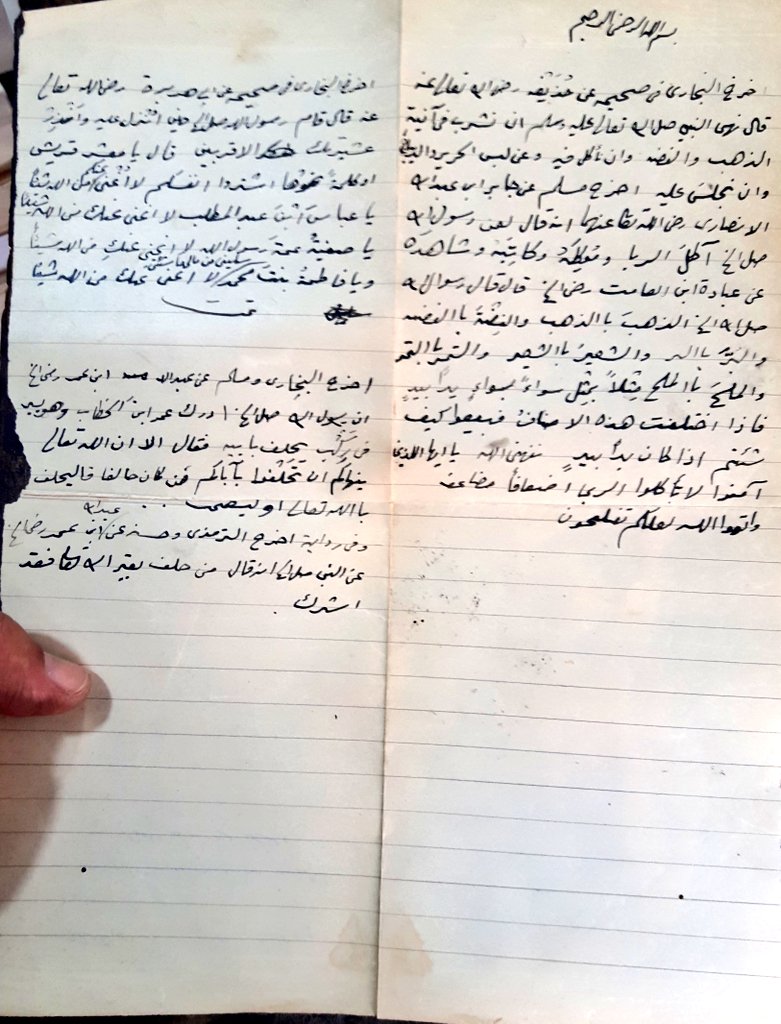 بسم الله الرحمن الرحيم
اخرج البخاري في صحيحه عن حُذَيْفَه رضى الله تعالى عنه
قال نهى النبي صلى الله تعالى عليه وسلم ان نشرب في آنية
الذهب والفضه وان نأكل فيه وعن لبس الحرير والديباج
وان نجلسَ عليه اخرج مسلم عن جابر ابن عبد الله
الانصارى رضى الله تعا عنهما انه قال لعن رسول الله
صلى الخ آكلَ الربا ومُوكِلَهُ وكاتِبَهُ وشاهدَه
عن عبادة ابن الصامت رضى الخ قال قال رسول الله
صلى الله الخ الذهبَ باالذهب والفِضّةَ باالفضه
والبُرَّ باالبر والشعيرَ باالشعير والتمرَ باالتمر
والملحَ باالملح مِثلاً بمثل سواءً بسواءٍ يداً بيدٍ
فاذا اختلفت هذه الاصنافُ فبيعوا كيف
شئتم اذا كان يداً بيدٍ نهى الله ياايها اللذين
آمنوا لا تأكلوا الربى اضعافاً مضاعفه
واتقوا الله لعلكم تفلحون
اخرج البخارى في صحيحه عن ابى هريرة رضى الله تعالى
عنه قال قام رسول الله صلى الخ حين انزل عليه وَأَنْذِرْ
عشيرتك الاقربين قال يا معشر قريش
او كلمةً نحوَها اشتروا انفسكم لا اُغْنِى عنكم من الله شيئاً
يا عباسَ ابْنَ عبد المطلب لا اغنى عنك من الله شيئاً
يا صفيةُ عمةَ رسول الله لا اغنى عنكِ من الله شيئاً
ويا فاطمةُ بنتَ محمد سلينى من مالى ما شئتى لا اغنى عنك من الله شيئا
تمت
اخرج البخارى ومسلم عن عبد الله ابن عمر رضى الخ
ان رسول الله صلى الخ ادرك عمر ابن الخطاب وهو يسير
فى رَكْب يحلف بابيه فقال الا ان الله تعالى
ينهاكم ان تَحْلفوا بآبائكم فمن كان حالفا فاليحلف
باالله تعالى او ليصمت . . .
وفى رواية اخرج الترمذى وحسنه عن عبد الله ابن عمر رضى الخ
عن النبى صلى الخ انه قال من حلف بغير الله تعا فقد
اشرك .